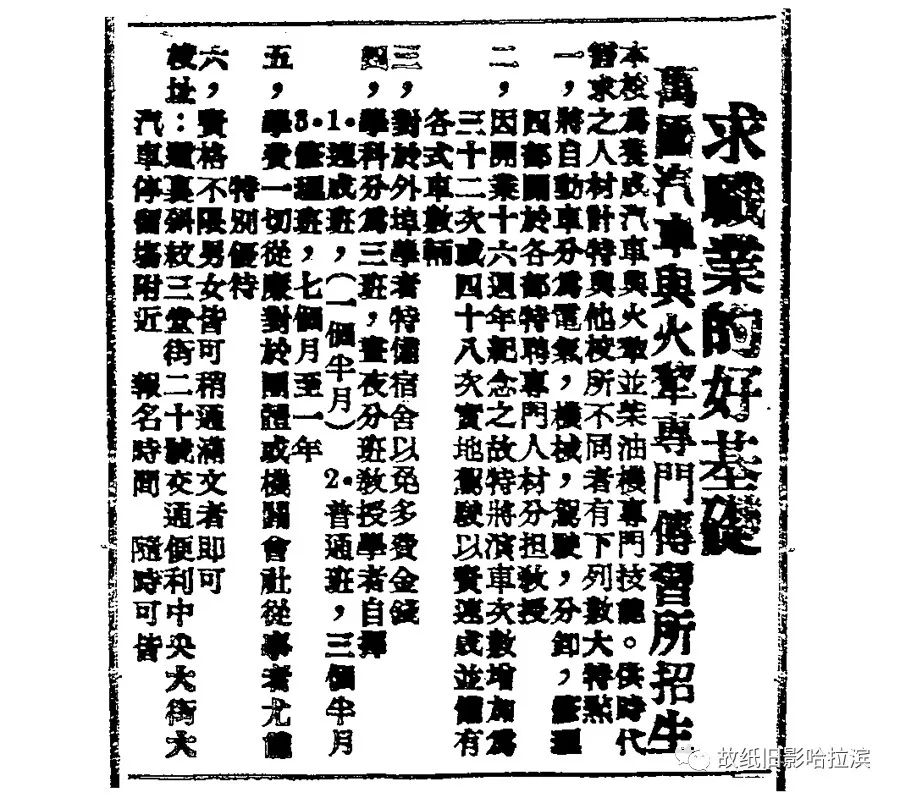 求職業的好基礎
萬國汽車與火犂專門傳習所招生
本校爲養成汽車與火犂並柴油機專門技能。供時代
需求之人材計特與他校所不同者有下列數大特點
一，將自動車分爲電氣，機械，駕駛，分卸，修理
四部關於各部特聘專門人材分担敎授
二，因開業十六週年紀念之故特將演車次數增加爲
三十二次或四十八次實地駕駛以資速成並備有
各式車數輛
三，對於外埠學者特備宿舍以免多費金錢
四，學科分爲三班，晝夜分班敎授學者自擇
1.速成班，（一個半月） 2.普通班，三個半月
3.修理班，七個月至一年
五，學費一切從廉對於團體或機關會社從事者尤備
特別優待
六，資格不限男女皆可稍通滿文者即可
校址：道裏斜紋三堂街二十號交通便利中央大街大
汽車停留塲附近 報名時間 隨時可皆
故纸旧影哈拉滨